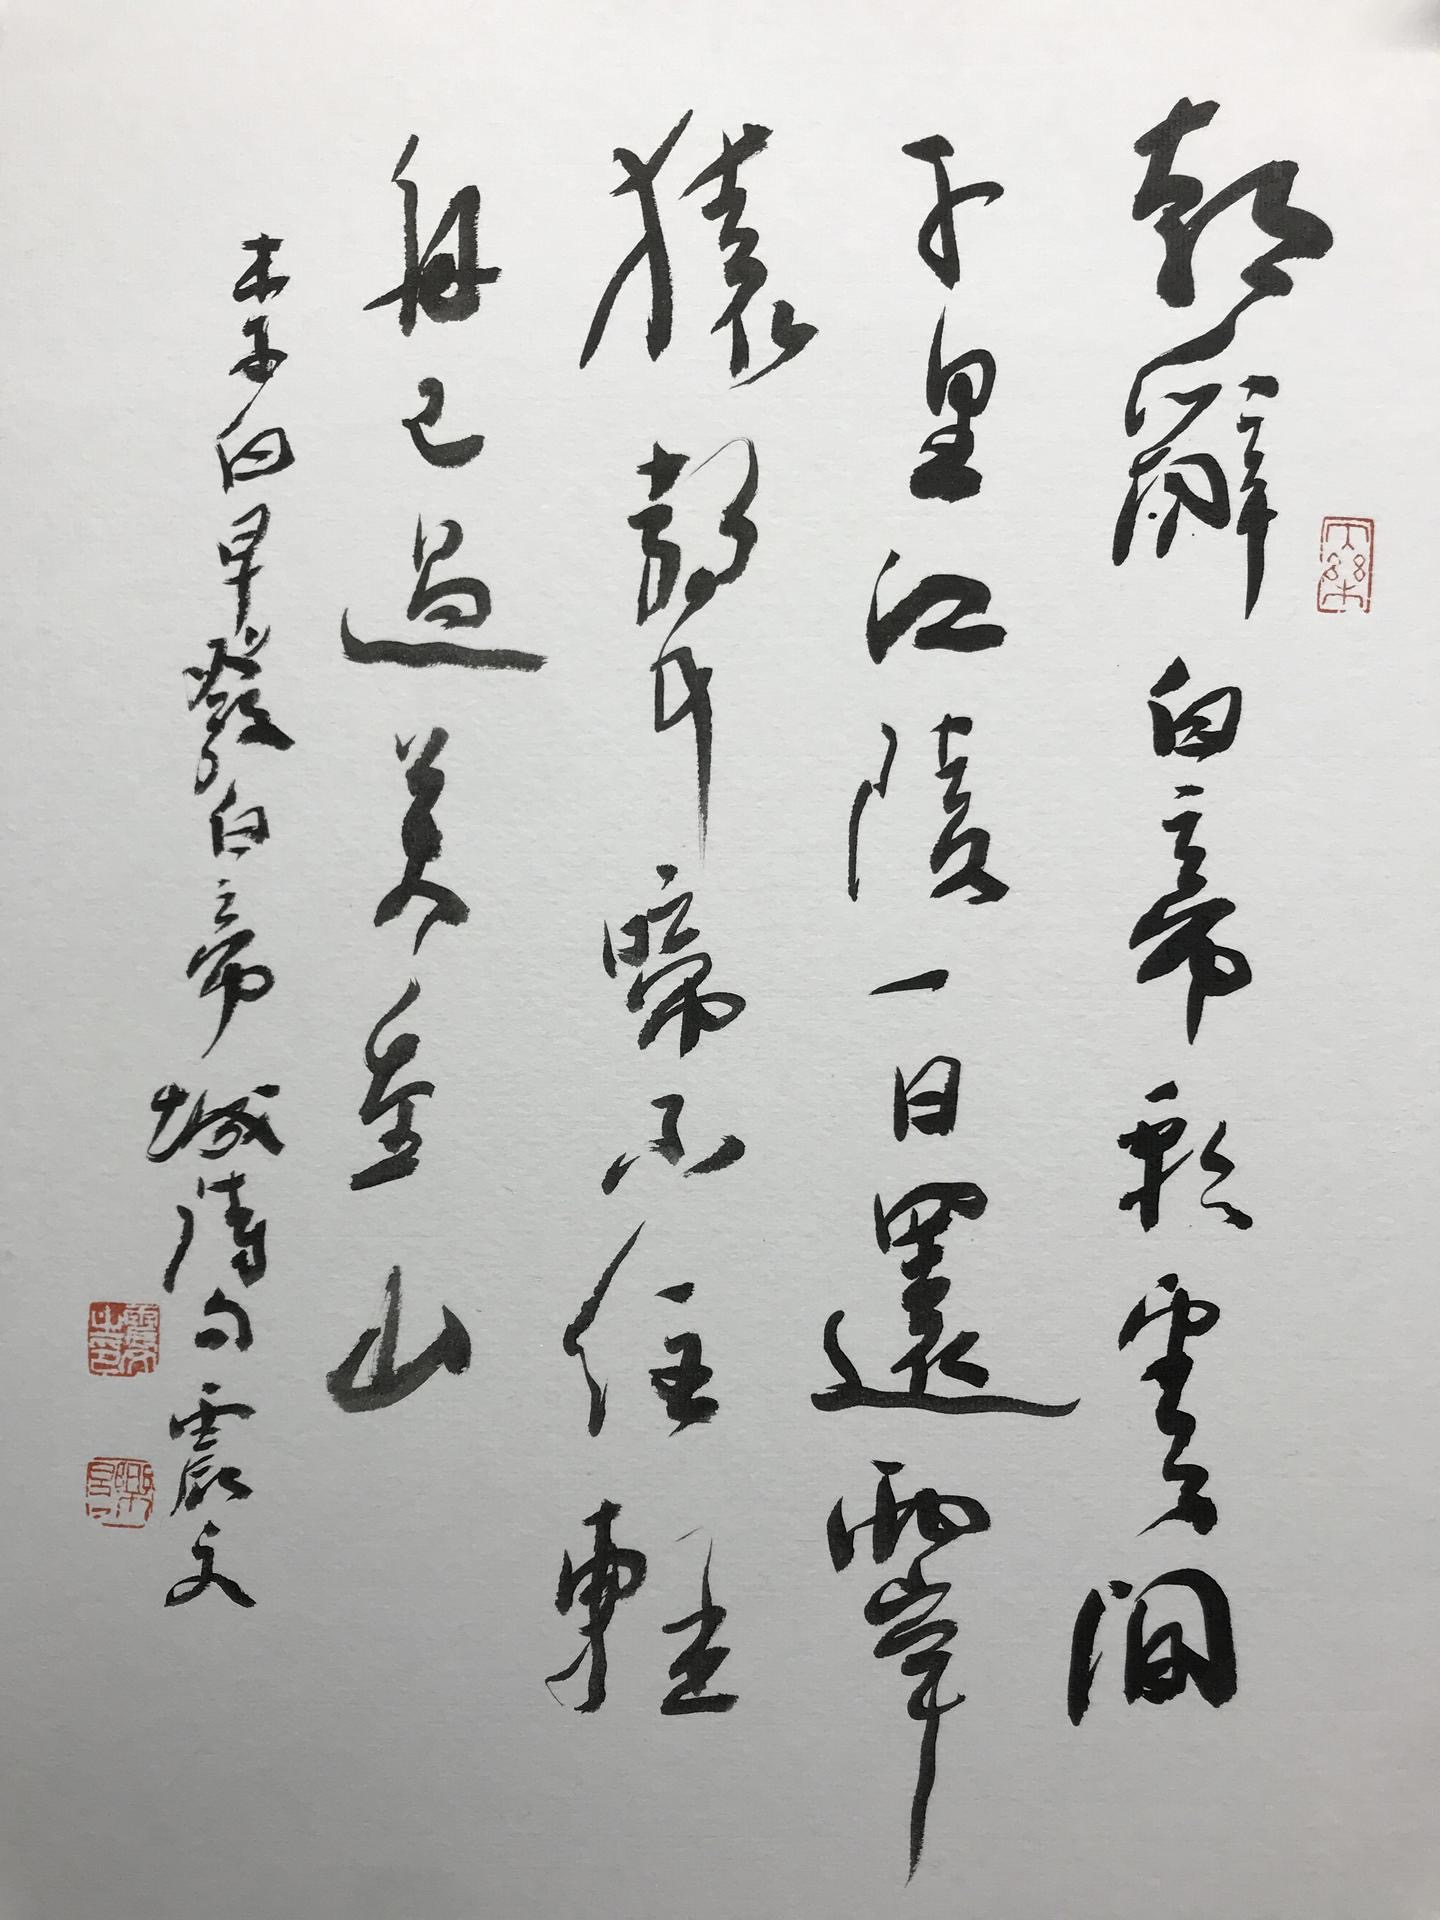 朝辭白帝彩雲間
千里江陵一日還兩岸
猿聲啼不住輕
舟已過萬重山
李白早發白帝城詩句震文